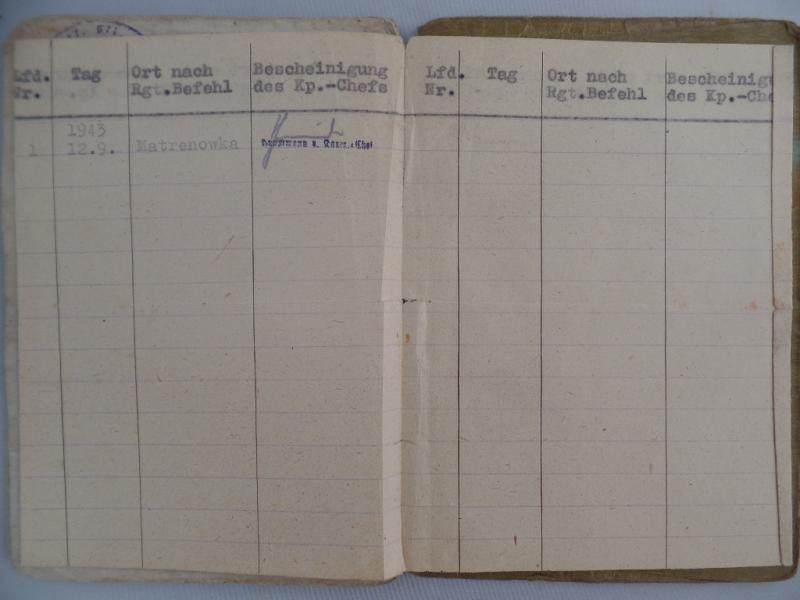 Lfd. Tag Ort nach Bescheinigung
Nr. Rgt.Befehl des Kp.-Chefs
1943
1 12.9. Matrenowka
Hauptmann u. Komp.-Chef
Lfd. Tag Ort nach Bescheinigu
Nr. Rgt.Befehl des Kp.-Che